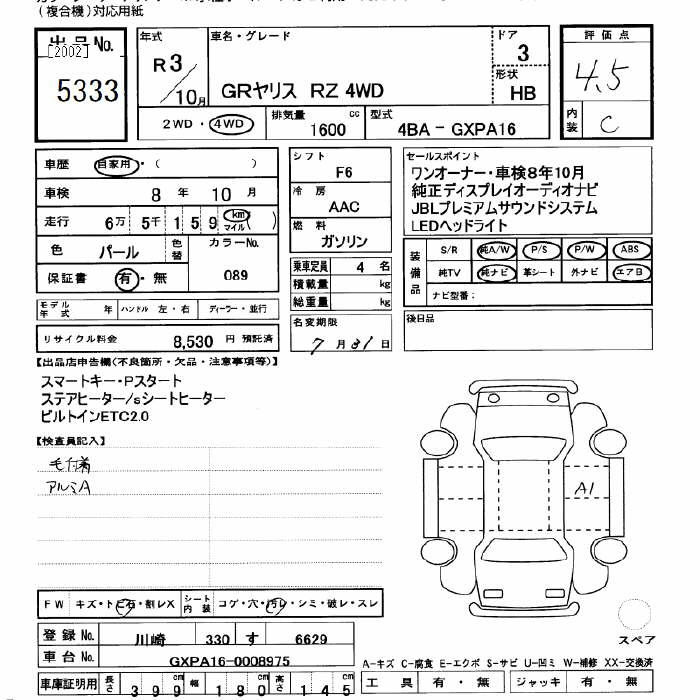 (複合機)対応用紙
出品No. [2002] 5333
年式 R3/10月
車名・グレード GRヤリス RZ 4WD
ドア 3
形状 HB
評価点 4.5
内装 C
2WD・4WD
排気量 1600 cc
型式 4BA-GXPA16
車歴 自家用・( )
車検 8年 10月
走行 6万 5千 1 5 9 km マイル ( )
色 パール 色替 カラーNo. 089
保証書 有・無
モデル年式 年 ハンドル 左・右 ディーラー・並行
リサイクル料金 8,530 円 預託済
シフト F6
冷房 AAC
燃料 ガソリン
乗車定員 4 名
積載量 kg
総重量 kg
名変期限 7月31日
セールスポイント
ワンオーナー・車検8年10月
純正ディスプレイオーディオナビ
JBLプレミアムサウンドシステム
LEDヘッドライト
装備品 S/R 純A/W P/S P/W ABS
純TV 純ナビ 革シート 外ナビ エアB
ナビ型番:
後日品
【出品店申告欄(不良箇所・欠品・注意事項等)】
スマートキー・Pスタート
ステアヒーター/sシートヒーター
ビルトインETC2.0
【検査員記入】
毛付着
アルミA
A1
FW キズ・トビ石・割レX シート内装 コゲ・穴・汚レ・シミ・破レ・スレ
スペア
登録No. 川崎 330 す 6629
車台No. GXPA16-0008975
車庫証明用 長さ 399cm 幅 180cm 高さ 145cm
A-キズ C-腐食 E-エクボ S-サビ U-凹ミ W-補修 XX-交換済
工具 有・無 ジャッキ 有・無